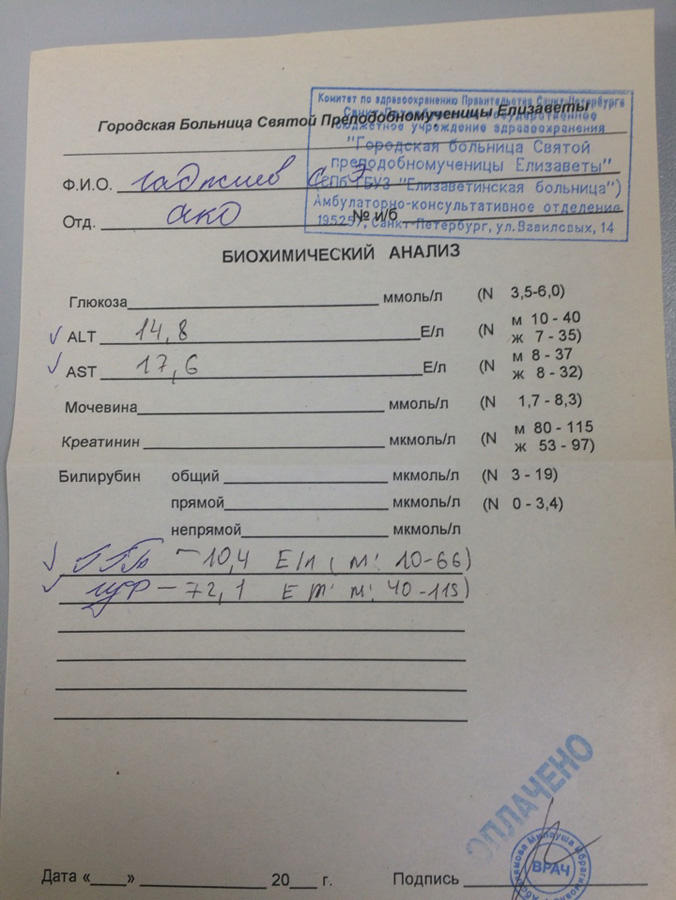 Городская Больница Святой Преподобномученицы Елизаветы
Комитет по здравоохранению Правительства Санкт-Петербурга
Санкт-Петербургское государственное
бюджетное учреждение здравоохранения
"Городская больница Святой
преподобномученицы Елизаветы"
(СПб ГБУЗ "Елизаветинская больница")
Амбулаторно-консультативное отделение
195257, Санкт-Петербург, ул.Вавиловых, 14
Ф.И.О. Гаджиев С Э
Отд. АКО № и/б
БИОХИМИЧЕСКИЙ АНАЛИЗ
Глюкоза ммоль/л (N 3,5-6,0)
ALT 14,8 Е/л (N м 10 - 40
ж 7 - 35)
AST 17,6 Е/л (N м 8 - 37
ж 8 - 32)
Мочевина ммоль/л (N 1,7 - 8,3)
Креатинин мкмоль/л (N м 80 - 115
ж 53 - 97)
Билирубин общий мкмоль/л (N 3 - 19)
прямой мкмоль/л (N 0 - 3,4)
непрямой мкмоль/л
– 10,4 Е/л (м: 10-66)
– 72,1 Е м: 40-115)
ОПЛАЧЕНО
ВРАЧ
Дата «___» 20___ г. Подпись